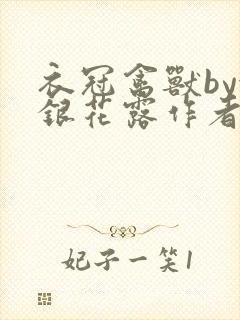 衣冠禽獸by
銀花露作者
妃子一笑1